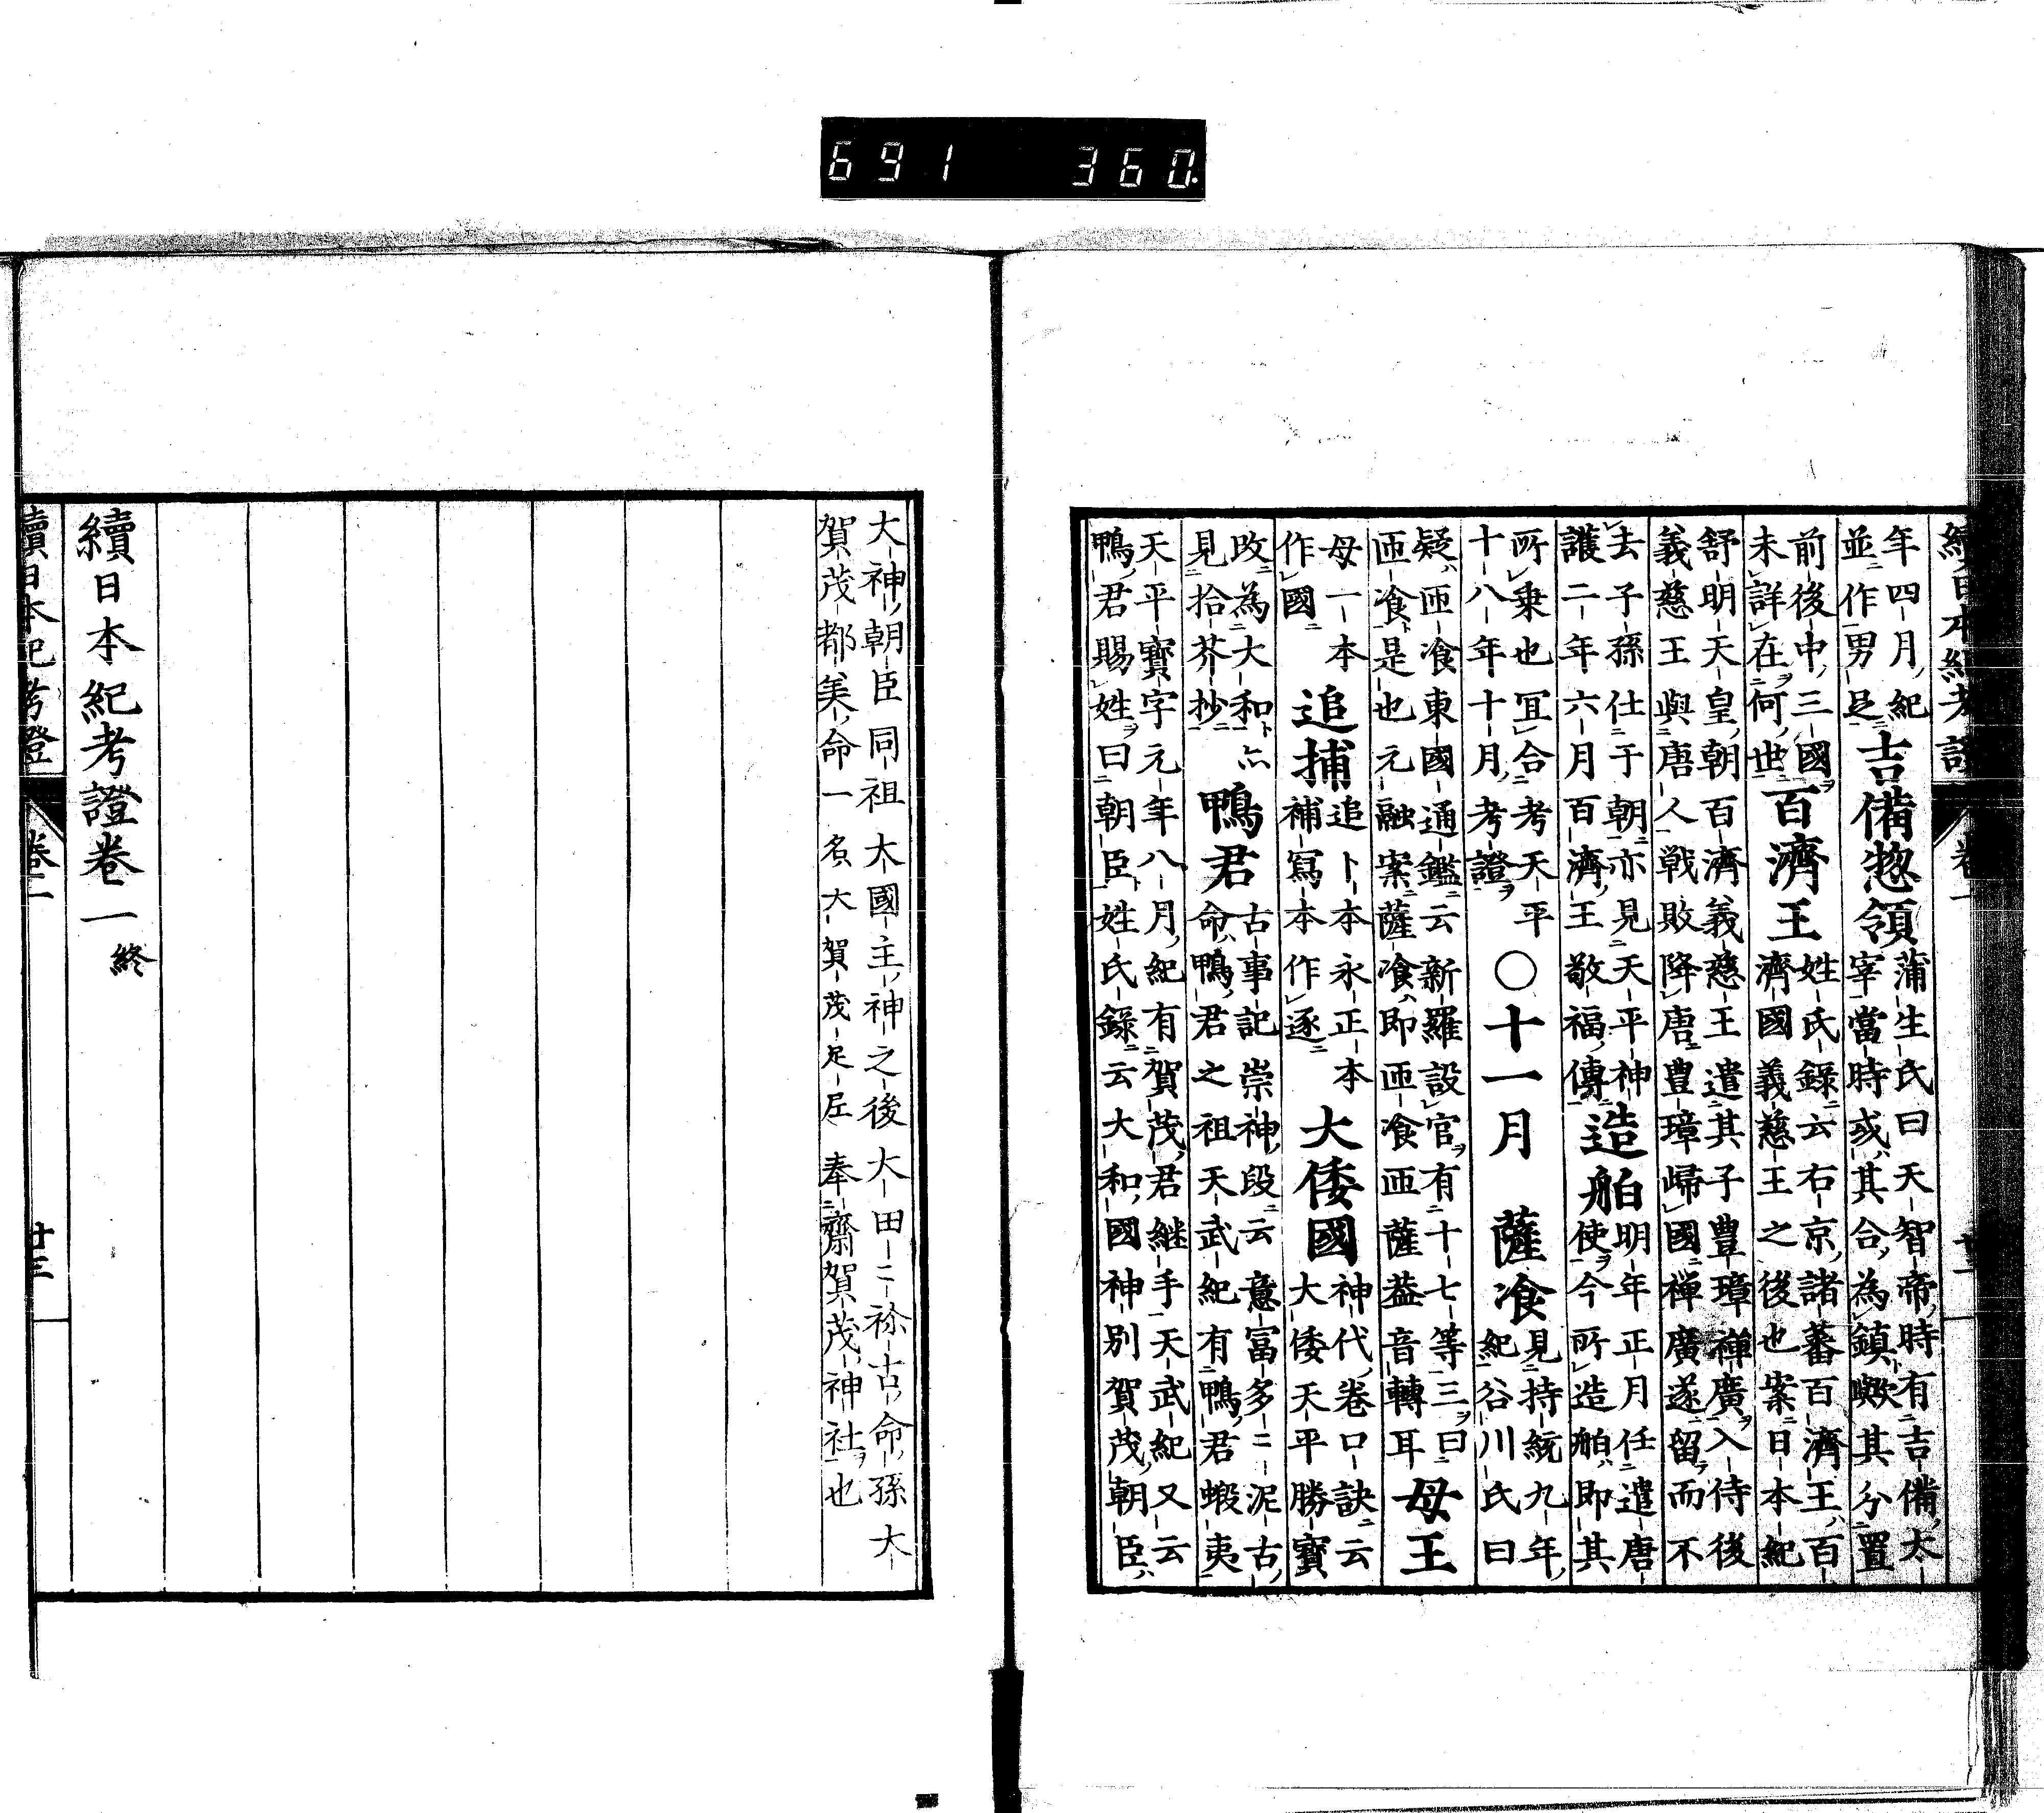 691 360
續日本紀考證 卷一
年四月紀
並作男足
吉備惣領
蒲生氏曰天智帝時有吉備太
宰當時或其合為鎮歟其分置
前後中三國
未詳在何世
百濟王
姓氏録云右京諸蕃百濟王百
濟國義慈王之後也案日本紀
舒明天皇朝百濟義慈王遣其子豊璋禅廣入侍後
義慈王與唐人戦敗降唐豊璋歸國禅廣遂留而不
去子孫仕于朝亦見天平神
護二年六月百濟王敬福傳
造舶
明年正月任遣唐
使今所造舶即其
所乗也冝合考天平
十八年十月考證
○十一月
薩飡
見持統九年
紀谷川氏曰
疑匝飡東國通鑑云新羅設官有十七等三曰
匝飡是也元融案薩飡即匝飡匝薩葢音轉耳
母王
母一本
作國
追捕
追卜本永正本
補冩本作逐
大倭國
神代卷口訣云
大倭天平勝寳
改為大和亦
見拾芥抄
鴨君
古事記崇神段云意冨多二泥古
命鴨君之祖天武紀有鴨君蝦夷
天平寳字元年八月紀有賀茂君継手天武紀又云
鴨君賜姓曰朝臣姓氏録云大和國神別賀茂朝臣
大神朝臣同祖大國主神之後大田二祢古命孫大
賀茂都美命一名大賀茂足尼奉齋賀茂神社也
續日本紀考證卷一終
續日本紀考證 卷一 廿三